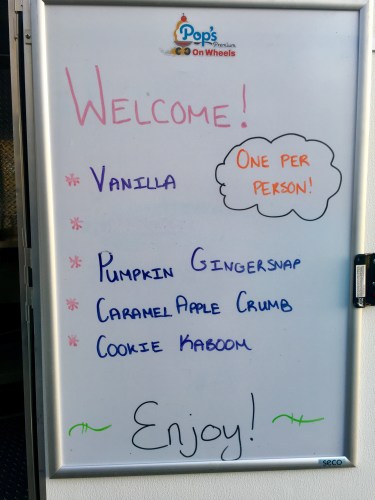 Pop's
Premium
On Wheels
WELCOME!
ONE PER
PERSON!
* VANILLA
*
* PUMPKIN GINGERSNAP
* CARAMEL APPLE CRUMB
* COOKIE KABOOM
Enjoy!
seco